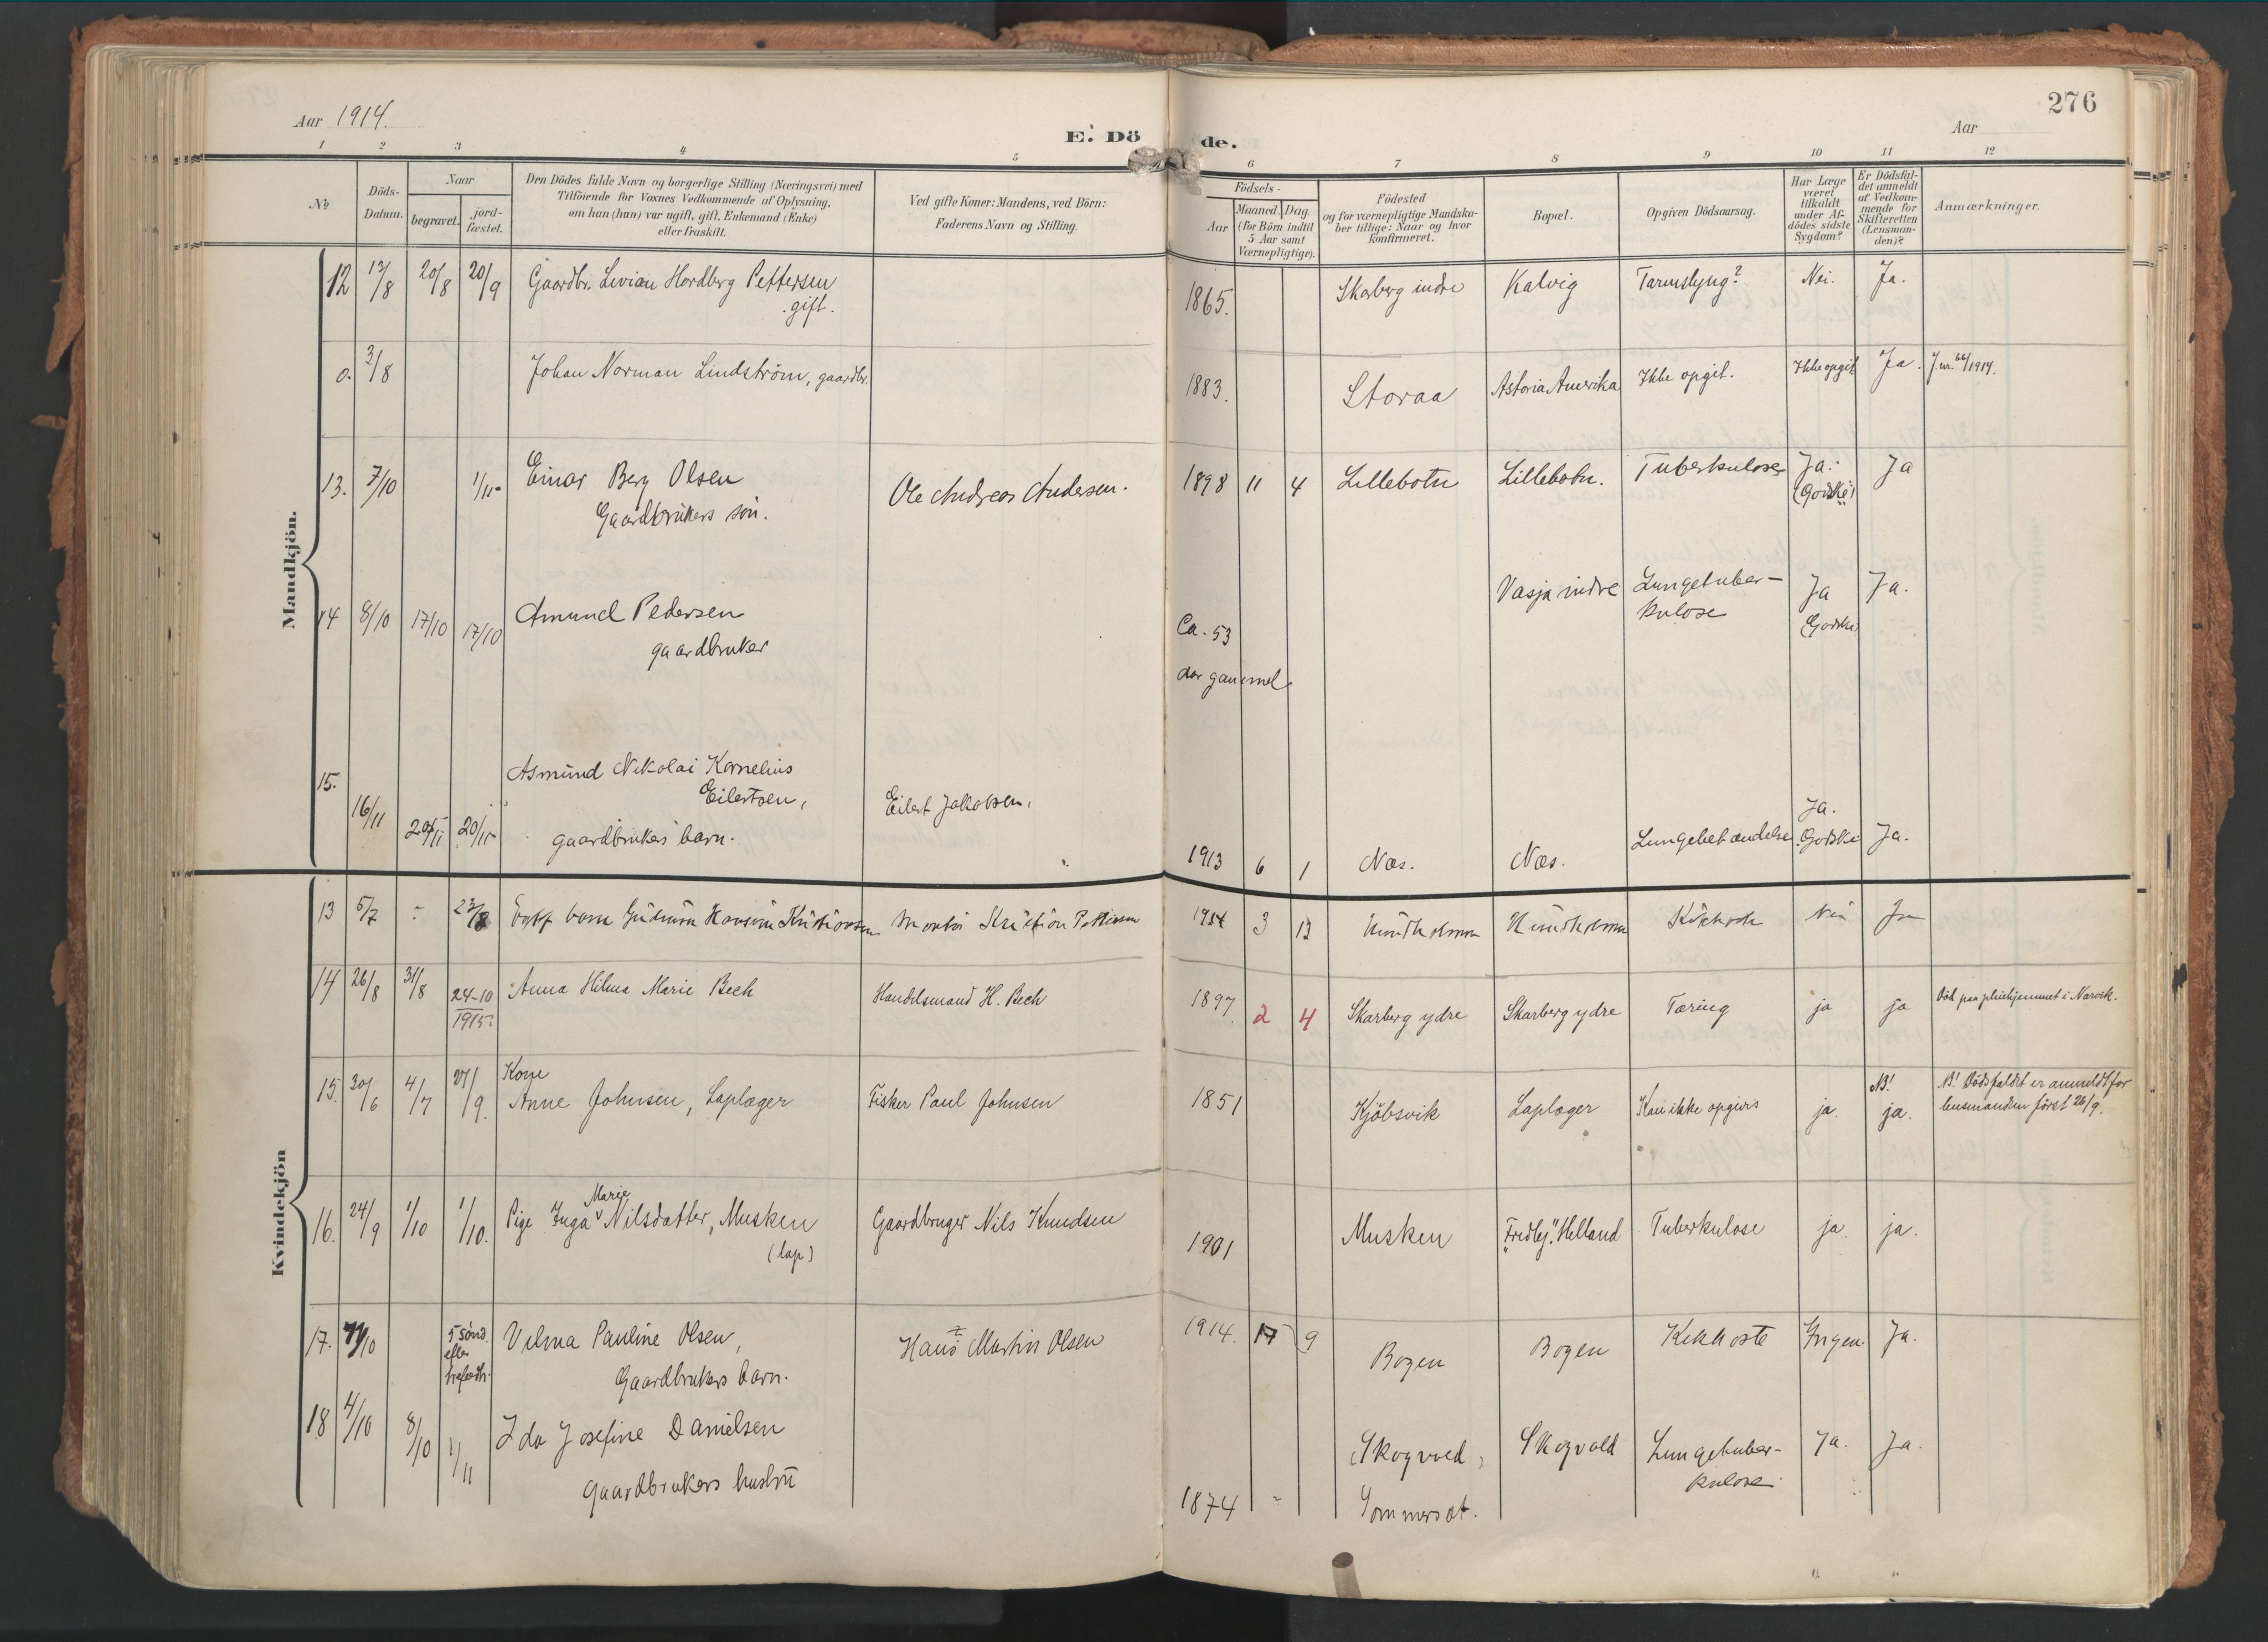 Aar 1914.
E. Döde.
Aar
276
1 2 3 4 5 6 7 8 9 10 11 12
No
Döds-Datum.
Naar
begravet.
jord-fæstet.
Den Dödes fulde Navn og borgerlige Stilling (Næringsvei) med
Tilföiende for Voxnes Vedkommende af Oplysning,
om han (hun) var ugift, gift, Enkemand (Enke)
eller fraskilt.
Ved gifte Koner: Mandens, ved Börn:
Faderens Navn og Stilling.
Födsels-
Aar
Maaned. Dag.
(for Börn indtil
5 Aar samt
Værnepligtige).
Födested
og for værnepligtige Mandska-
ber tillige: Naar og hvor
konfirmeret.
Bopæl.
Opgiven Dödsaarsag.
Har Læge
været
tilkaldt
under Af-
dödes sidste
Sygdom?
Er Dödsfal-
det anmeldt
af Vedkom-
mende for
Skifteretten
(Lensman-
den)?
Anmærkninger.
Mandkjön.
12 13/8 20/8 20/9 Gaardbr. Levian Hordberg Pettersen 1865. Skarberg indre Kalvig Tarmslyng? Nei. Ja.
gift.
0. 3/8 Johan Norman Lindström, gaardbr. 1883. Storaa Astoria Amerika Ikke opgit. Ikke opgit Ja. J.nr. 66/1914.
13. 7/10 1/11- Einar Berg Olsen Ole Andreas Andersen. 1898 11 4 Lillebotn Lillebotn. Tuberkulose Ja. Ja
Gaardbrukers sön. (Godske)
14 8/10 17/10 17/10 Amund Pedersen Ca. 53 Vasja indre Lungetuber- Ja Ja.
gaardbruker aar gammel kulose (Godske)
15. Asmund Nikolai Kornelius
Eilertsen, Eilert Jakobsen, Ja.
16/11 20/11 20/11 gaardbrukers barn. 1913 6 1 Næs. Næs. Lungebetændelse Godske Ja.
Kvindekjön
13 5/7 - 23/8 barn Gudrun Kristiansen Kristian 1914 3 13 Kikhoste Nei Ja
14 26/8 31/8 24-10 1915 Anna Hilma Marie Bech Handelsmand H. Bech 1897. 2 4 Skarberg ydre Skarberg ydre Tæring ja ja Död paa pleiehjemmet i Narvik.
15. 30/6 4/7 27/9. Kone
Anne Johnsen, Laplæger Fisker Paul Johnsen 1851 Kjöbsvik Laplæger Kan ikke opgives ja. NB! ja. NB! Dödsfaldet er anmeldt for
lensmanden först 26/9.
16. 24/9 1/10 1/10. Pige Inga Marie Nilsdatter, Musken Gaardbruger Nils Knudsen 1901 Musken "Fredly", Helland Tuberkulose ja. ja.
(lap)
17. 11/10 5 sönd. efter trefoldh. Velma Pauline Olsen, Hans Martin Olsen 1914. 9 Bogen Bogen Kikhoste Ingen Ja.
Gaardbrukers barn.
18 4/10 8/10 1/11 Ida Josefine Danielsen (Skogvold) Skogvold Lungetuber- Ja. Ja.
gaardbrukers hustru 1874 - Sommerset. kulose.